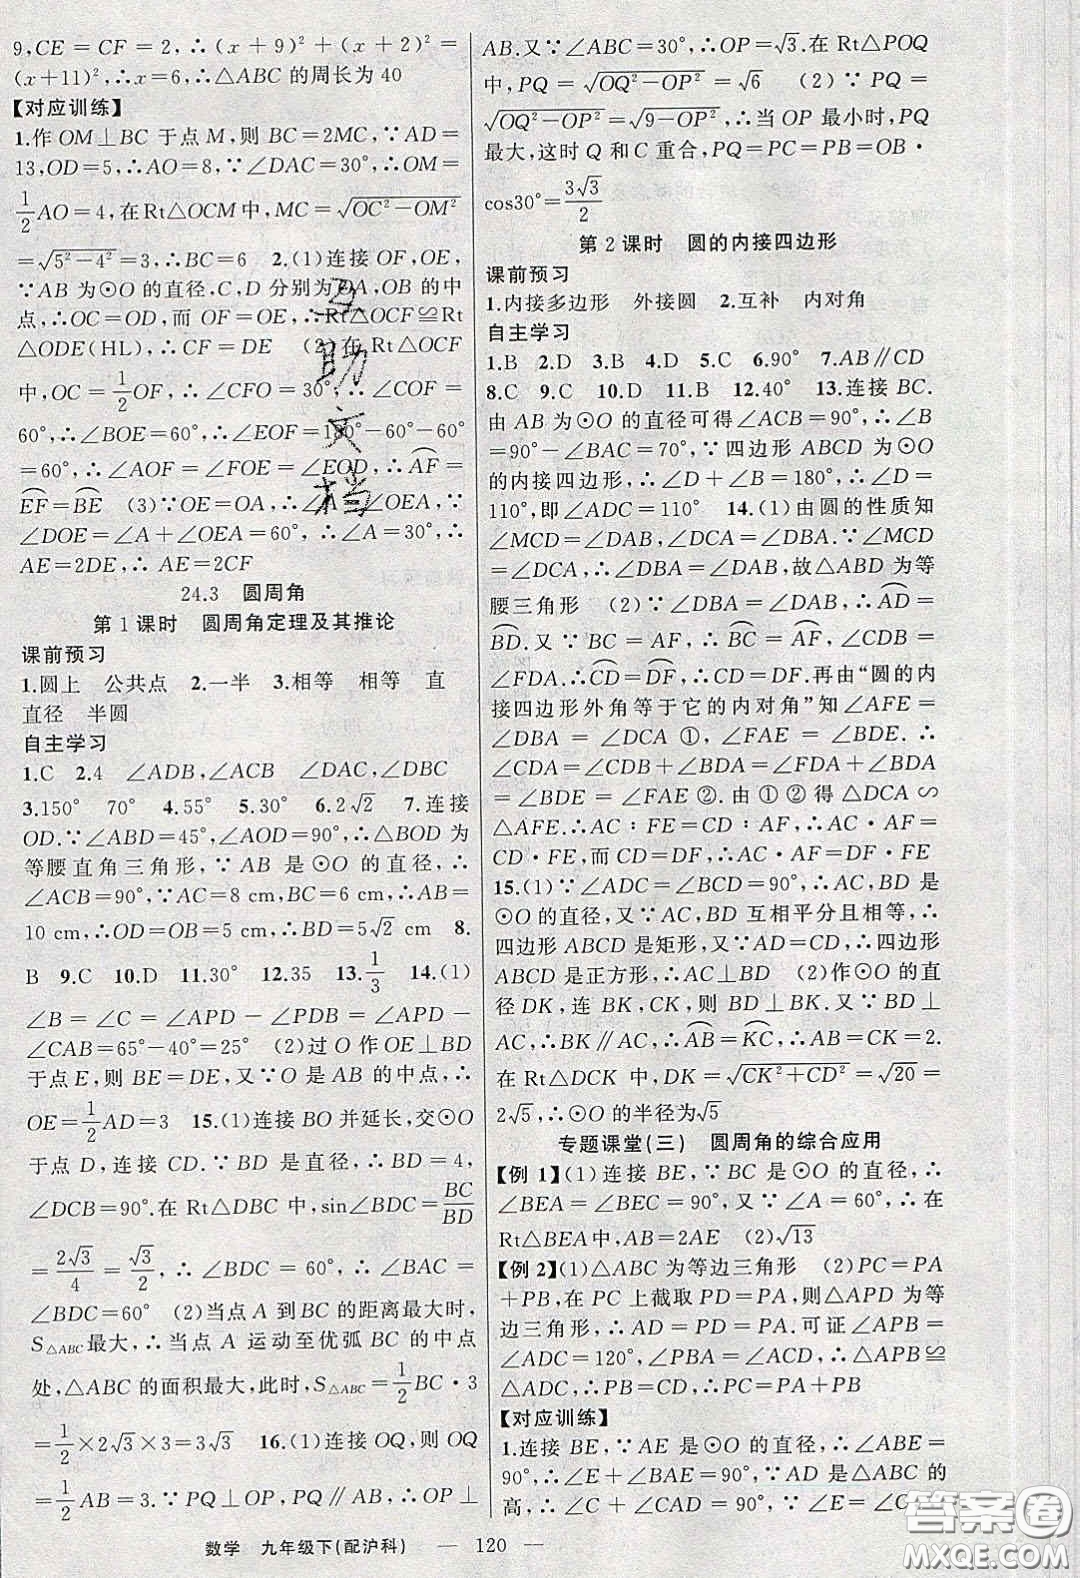 9,CE=CF=2,∴(x+9)²+(x+2)²=
(x+11)²,∴x=6,∴△ABC的周长为40
【对应训练】
1.作OM⊥BC于点M,则BC=2MC,∵AD=
13,OD=5,∴AO=8,∵∠DAC=30°,∴OM=
1/2AO=4,在Rt△OCM中,MC=√(OC²-OM²)
=√(5²-4²)=3,∴BC=6 2.(1)连接OF,OE,
∵AB为⊙O的直径,C,D分别为OA,OB的中
点,∴OC=OD,而OF=OE,∴Rt△OCF≌Rt
△ODE(HL),∴CF=DE (2)在Rt△OCF
中,OC=1/2OF,∴∠CFO=30°,∴∠COF=
60°,∴∠BOE=60°,∴∠EOF=180°-60°-60°
=60°,∴∠AOF=∠FOE=∠EOD,∴⌒AF=
⌒EF=⌒BE (3)∵OE=OA,∴∠A=∠OEA,∵
∠DOE=∠A+∠OEA=60°,∴∠A=30°,∴
AE=2DE,∴AE=2CF
24.3 圆周角
第1课时 圆周角定理及其推论
课前预习
1.圆上 公共点 2.一半 3.相等 相等 直
直径 半圆
自主学习
1.C 2.4 ∠ADB,∠ACB ∠DAC,∠DBC
3.150° 70° 4.55° 5.30° 6.2√2 7.连接
OD.∵∠ABD=45°,∠AOD=90°,∴△BOD为
等腰直角三角形,∵AB是⊙O的直径,∴
∠ACB=90°,∵AC=8 cm,BC=6 cm,∴AB=
10 cm,∴OD=OB=5 cm,∴BD=5√2 cm 8.
B 9.C 10.D 11.30° 12.35 13.1/3 14.(1)
∠B=∠C=∠APD-∠PDB=∠APD-
∠CAB=65°-40°=25° (2)过O作OE⊥BD
于点E,则BE=DE,又∵O是AB的中点,∴
OE=1/2AD=3 15.(1)连接BO并延长,交⊙O
于点D,连接CD.∵BD是直径,∴BD=4,
∠DCB=90°.在Rt△DBC中,sin∠BDC=BC/BD
=2√3/4=√3/2,∴∠BDC=60°,∴∠BAC=
∠BDC=60° (2)当点A到BC的距离最大时,
S△ABC最大,∴当点A运动至优弧BC的中点
处,△ABC的面积最大,此时,S△ABC=1/2BC·3
=1/2×2√3×3=3√3 16.(1)连接OQ,则OQ
=1/2AB=3.∵PQ⊥OP,PQ∥AB,∴OP⊥
AB.又∵∠ABC=30°,∴OP=√3.在Rt△POQ
中,PQ=√(OQ²-OP²)=√6 (2)∵PQ=
√(OQ²-OP²)=√(9-OP²),∴当OP最小时,PQ
最大,这时Q和C重合,PQ=PC=PB=OB·
cos30°=3√3/2
第2课时 圆的内接四边形
课前预习
1.内接多边形 外接圆 2.互补 内对角
自主学习
1.B 2.D 3.B 4.D 5.C 6.90° 7.AB∥CD
8.C 9.C 10.D 11.B 12.40° 13.连接BC.
由AB为⊙O的直径可得∠ACB=90°,∴∠B
=90°-∠BAC=70°,∵四边形ABCD为⊙O
的内接四边形,∴∠D+∠B=180°,∴∠D=
110°,即∠ADC=110° 14.(1)由圆的性质知
∠MCD=∠DAB,∠DCA=∠DBA,∵∠MCD
=∠DCA,∴∠DBA=∠DAB,故△DAB为等
腰三角形 (2)∵∠DBA=∠DAB,∴⌒AD=
⌒BD.又∵BC=AF,∴⌒BC=⌒AF,∠CDB=
∠FDA.∴⌒CD=⌒DF,∴CD=DF.再由“圆的内
接四边形外角等于它的内对角”知∠AFE=
∠DBA=∠DCA ①,∠FAE=∠BDE.∴
∠CDA=∠CDB+∠BDA=∠FDA+∠BDA=
∠BDE=∠FAE ②.由①②得△DCA∽
△AFE.∴AC∶FE=CD∶AF,∴AC·AF=
CD·FE,而CD=DF,∴AC·AF=DF·FE
15.(1)∵∠ADC=∠BCD=90°,∴AC,BD是
⊙O的直径,又∵AC,BD互相平分且相等,∴
四边形ABCD是矩形,又∵AD=CD,∴四边形
ABCD是正方形,∴AC⊥BD (2)作⊙O的直
径DK,连BK,CK,则BD⊥BK.又∵BD⊥
AC,∴BK∥AC,∴⌒AB=⌒KC,∴AB=CK=2.
在Rt△DCK中,DK=√(CK²+CD²)=√20=
2√5,∴⊙O的半径为√5
专题课堂(三) 圆周角的综合应用
【例1】(1)连接BE,∵BC是⊙O的直径,∴
∠BEA=∠BEC=90°,又∵∠A=60°,∴在
Rt△BEA中,AB=2AE (2)√13
【例2】(1)△ABC为等边三角形 (2)PC=PA
+PB,在PC上截取PD=PA,则△APD为等
边三角形,∴AD=PD=PA.可证∠APB=
∠ADC=120°,∠ABP=∠ACD,∴△APB≌
△ADC,∴PB=CD,∴PC=PA+PB
【对应训练】
1.连接BE,∵AE是⊙O的直径,∴∠ABE=
90°,∴∠E+∠BAE=90°,∵AD是△ABC的
高,∴∠C+∠CAD=90°,∵∠E=∠C,
数学 九年级下(配沪科) — 120 —
互助文档
答案圈